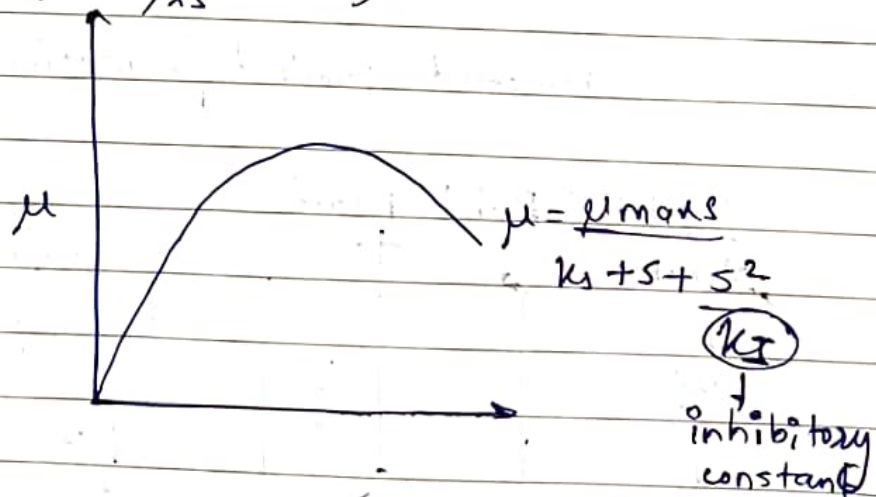 μ
μ = μmaxs
ks + s + s²
kI
inhibitory
constant